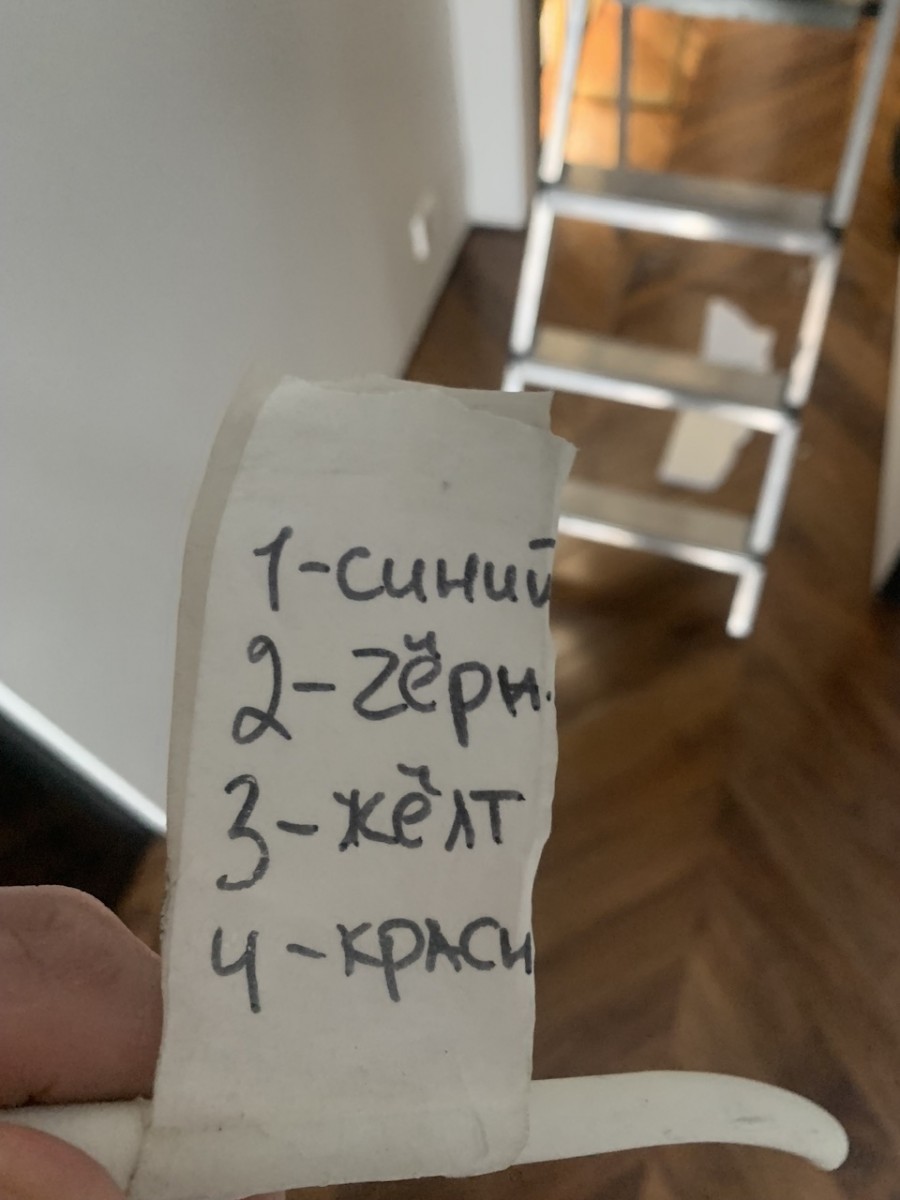 1-синий
2-чёрн.
3-жёлт
4-красн